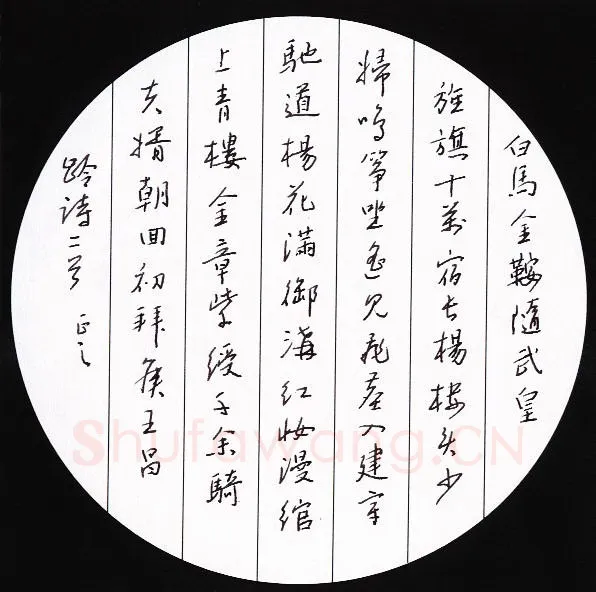 白馬金鞍隨武皇
旌旗十萬宿长楊樓头少
婦鳴箏坐遙见飛塵入建章
馳道楊花滿御溝红妆漫绾
上青樓金章紫綬千余騎
夫婿朝回初拜侯王昌
龄诗二首 正之
Shufawang.CN